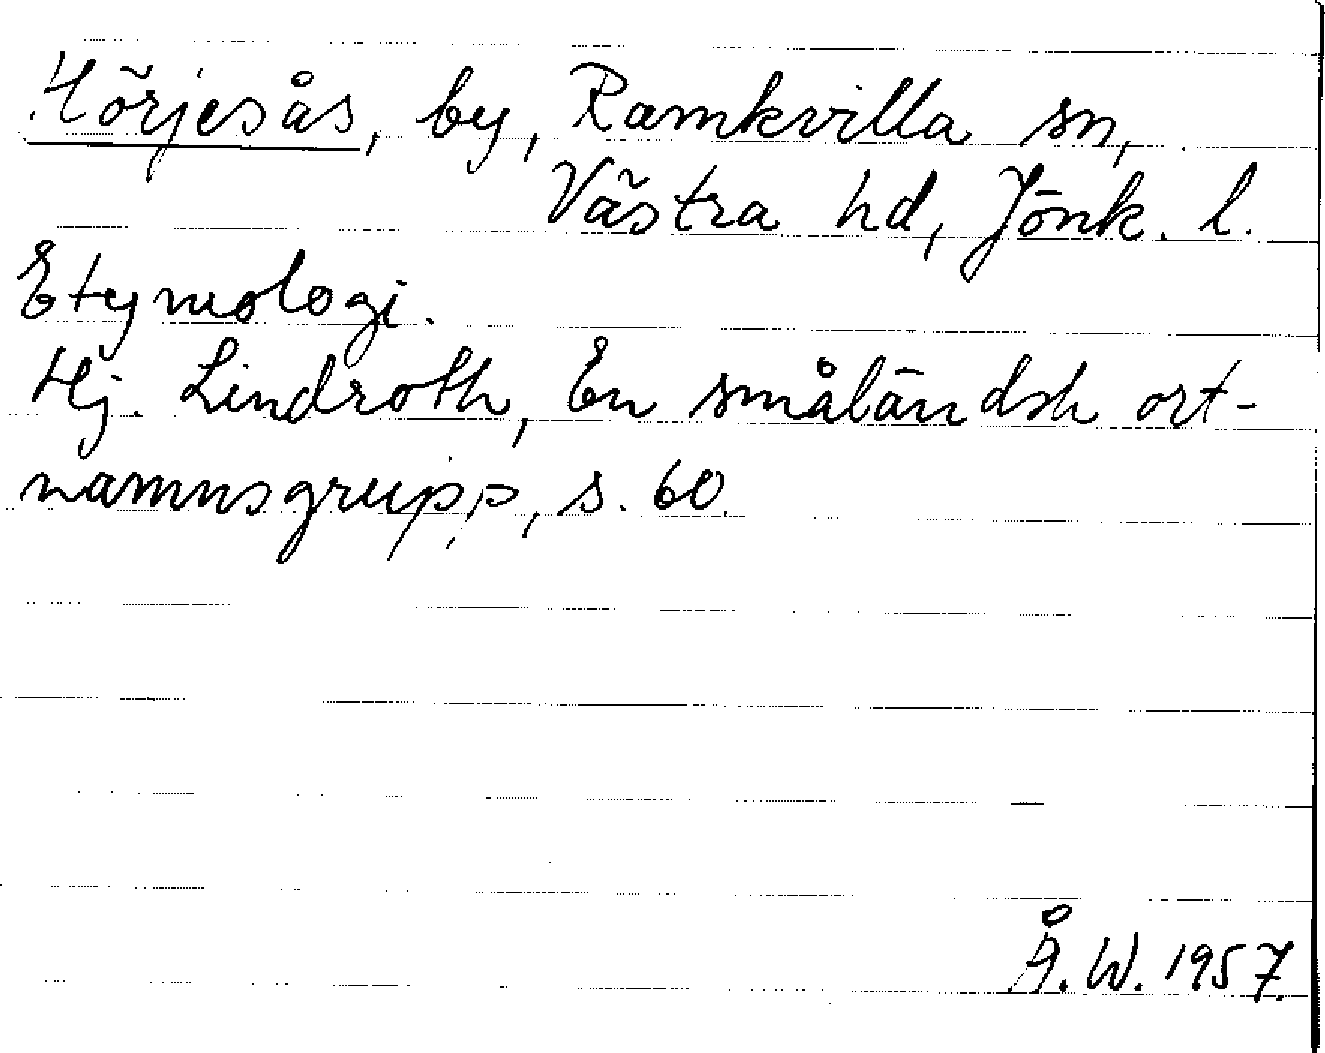 Hörjesås, by, Ramkvilla sn,
Västra hd, Jönk. l.
Etymologi.
Hj. Lindroth, En småländsk ort-
namnsgrupp, s. 60.
Å. W. 1957.